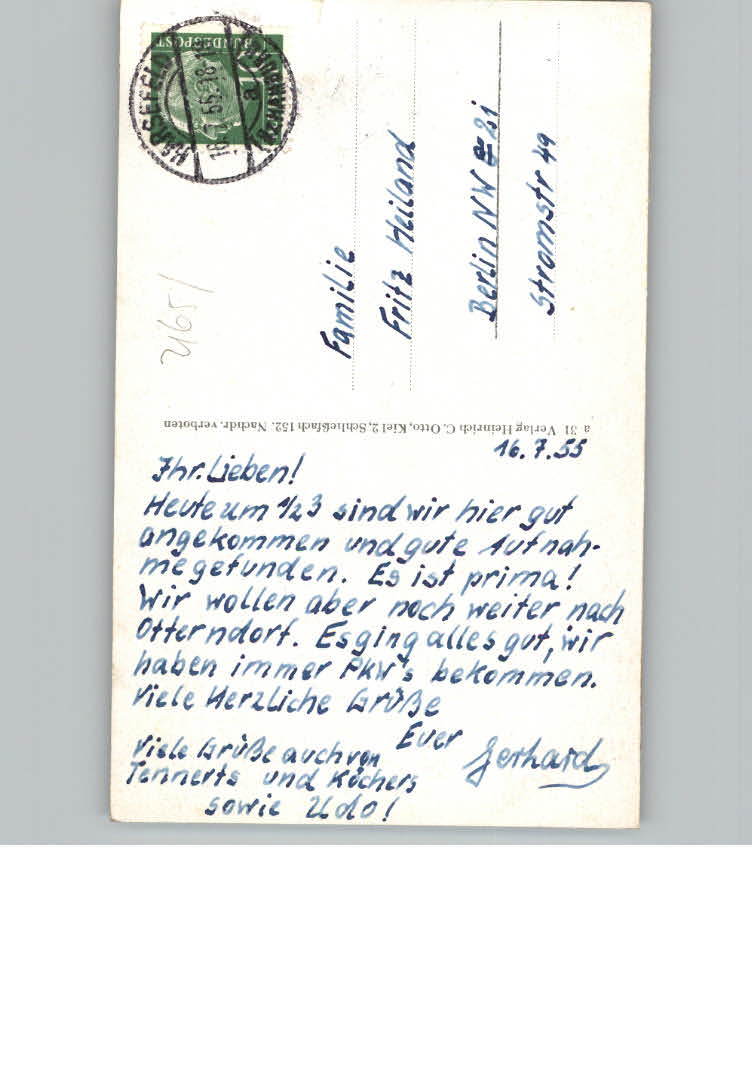 BUNDESPOST
HARSEFELD
a
Familie
Fritz Heiland
Berlin NW 21
Stromstr 49
a 31 Verlag Heinrich C. Otto, Kiel 2, Schließfach 152. Nachdr. verboten
16.7.55
Ihr Lieben!
Heute um 1/2 3 sind wir hier gut
angekommen und gute Aufnah-
me gefunden. Es ist prima!
Wir wollen aber noch weiter nach
Otterndorf. Es ging alles gut, wir
haben immer PKW's bekommen.
Viele Herzliche Grüße
Euer Gerhard
Viele Grüße auch von
Tennerts und Köchers
sowie Udo!